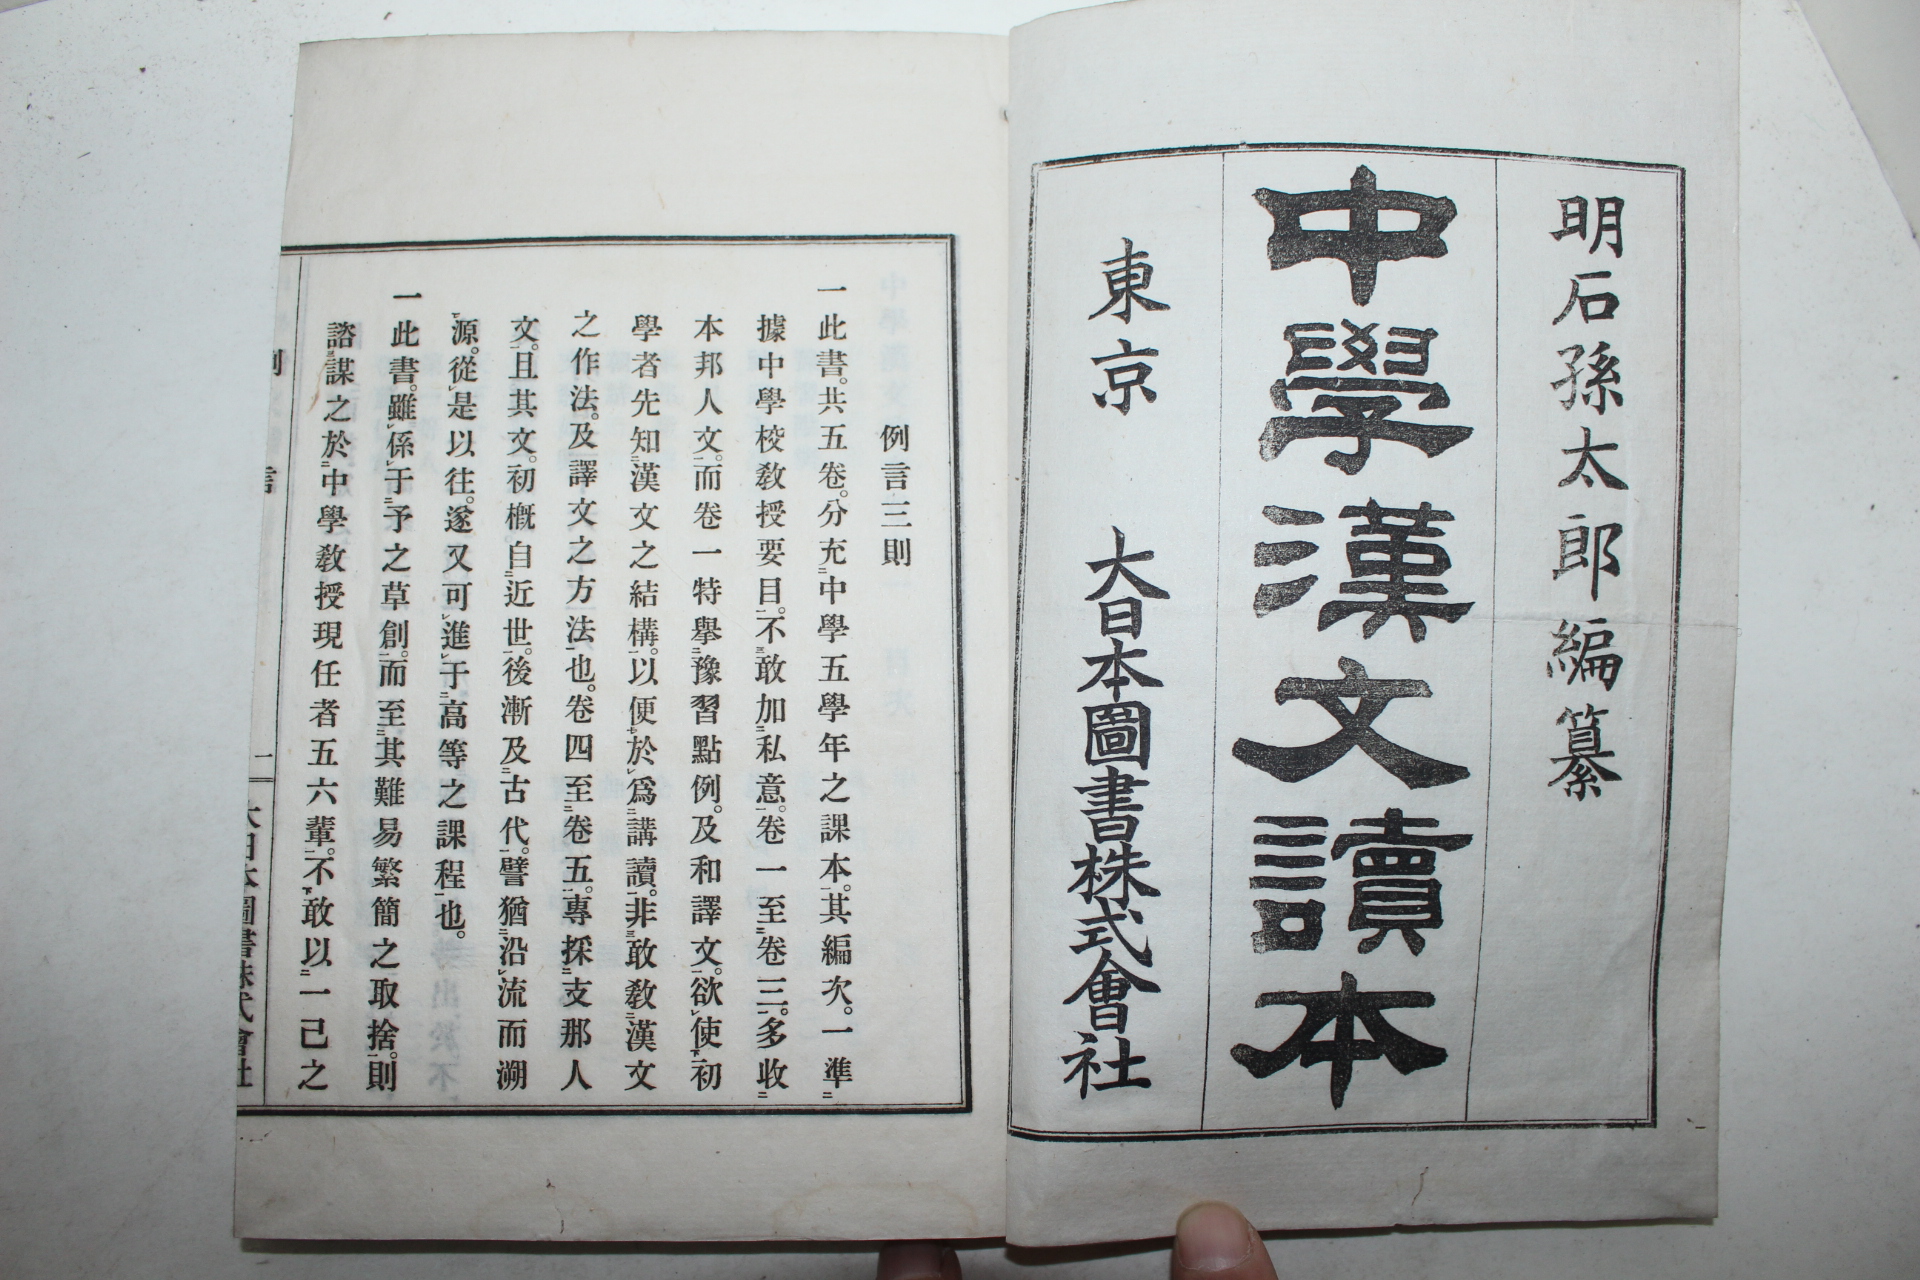 明石孫太郎編纂
中學漢文讀本
東京 大日本圖書株式會社
例言三則
一此書。共五卷。分充中學五學年之課本。其編次。一準
據中學校敎授要目。不敢加私意。卷一至卷三。多收
本邦人文。而卷一特擧豫習點例。及和譯文。欲使初
學者先知漢文之結構。以便於爲講讀。非敢敎漢文
之作法。及譯文之方法也。卷四至卷五。專採支那人
文。且其文。初槪自近世。後漸及古代。譬猶沿流而溯
源。從是以往。遂又可進于高等之課程也。
一此書。雖係于予之草創。而至其難易繁簡之取捨。則
諮謀之於中學敎授現任者五六輩。不敢以一己之
言
大日本圖書株式會社